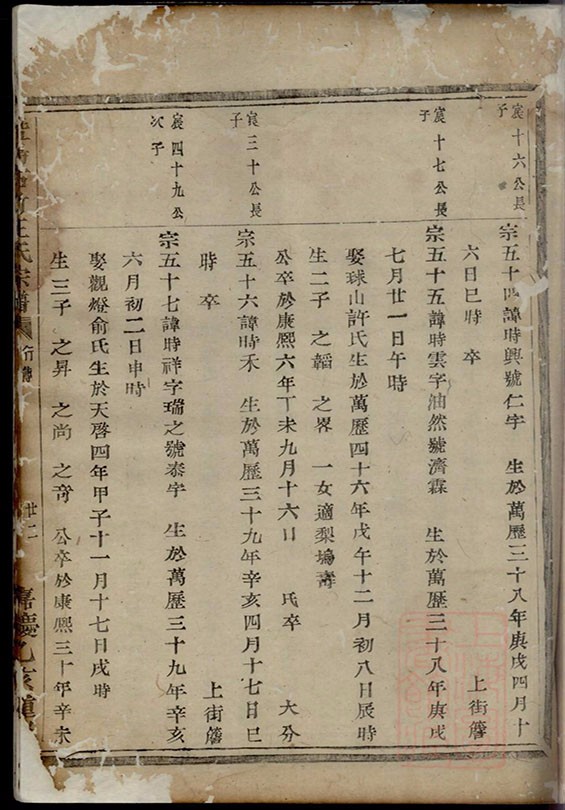 宸十六公長
子
宗五十四諱時興號仁宇 生於萬歷三十八年庚戌四月十
六日巳時 卒 上街簷
宸十七公長
子
宗五十五諱時雲字油然號濟霖 生於萬歷三十八年庚戌
七月廿一日午時
娶球山許氏生於萬歷四十六年戊午十二月初八日辰時
生二子 之韜 之畧 一女適梨塢壽
公卒於康熙六年丁未九月十六日 氏卒 大分
宸三十公長
子
宗五十六諱時禾 生於萬歷三十九年辛亥四月十七日巳
時 卒 上街簷
宸四十九公
次子
宗五十七諱時祥字瑞之號泰宇 生於萬歷三十九年辛亥
六月初二日申時
娶觀燈俞氏生於天啓四年甲子十一月十七日戌時
生三子 之昇 之尚 之奇 公卒於康熙三十年辛未
王氏宗譜 行傳 廿二 嘉慶乙亥